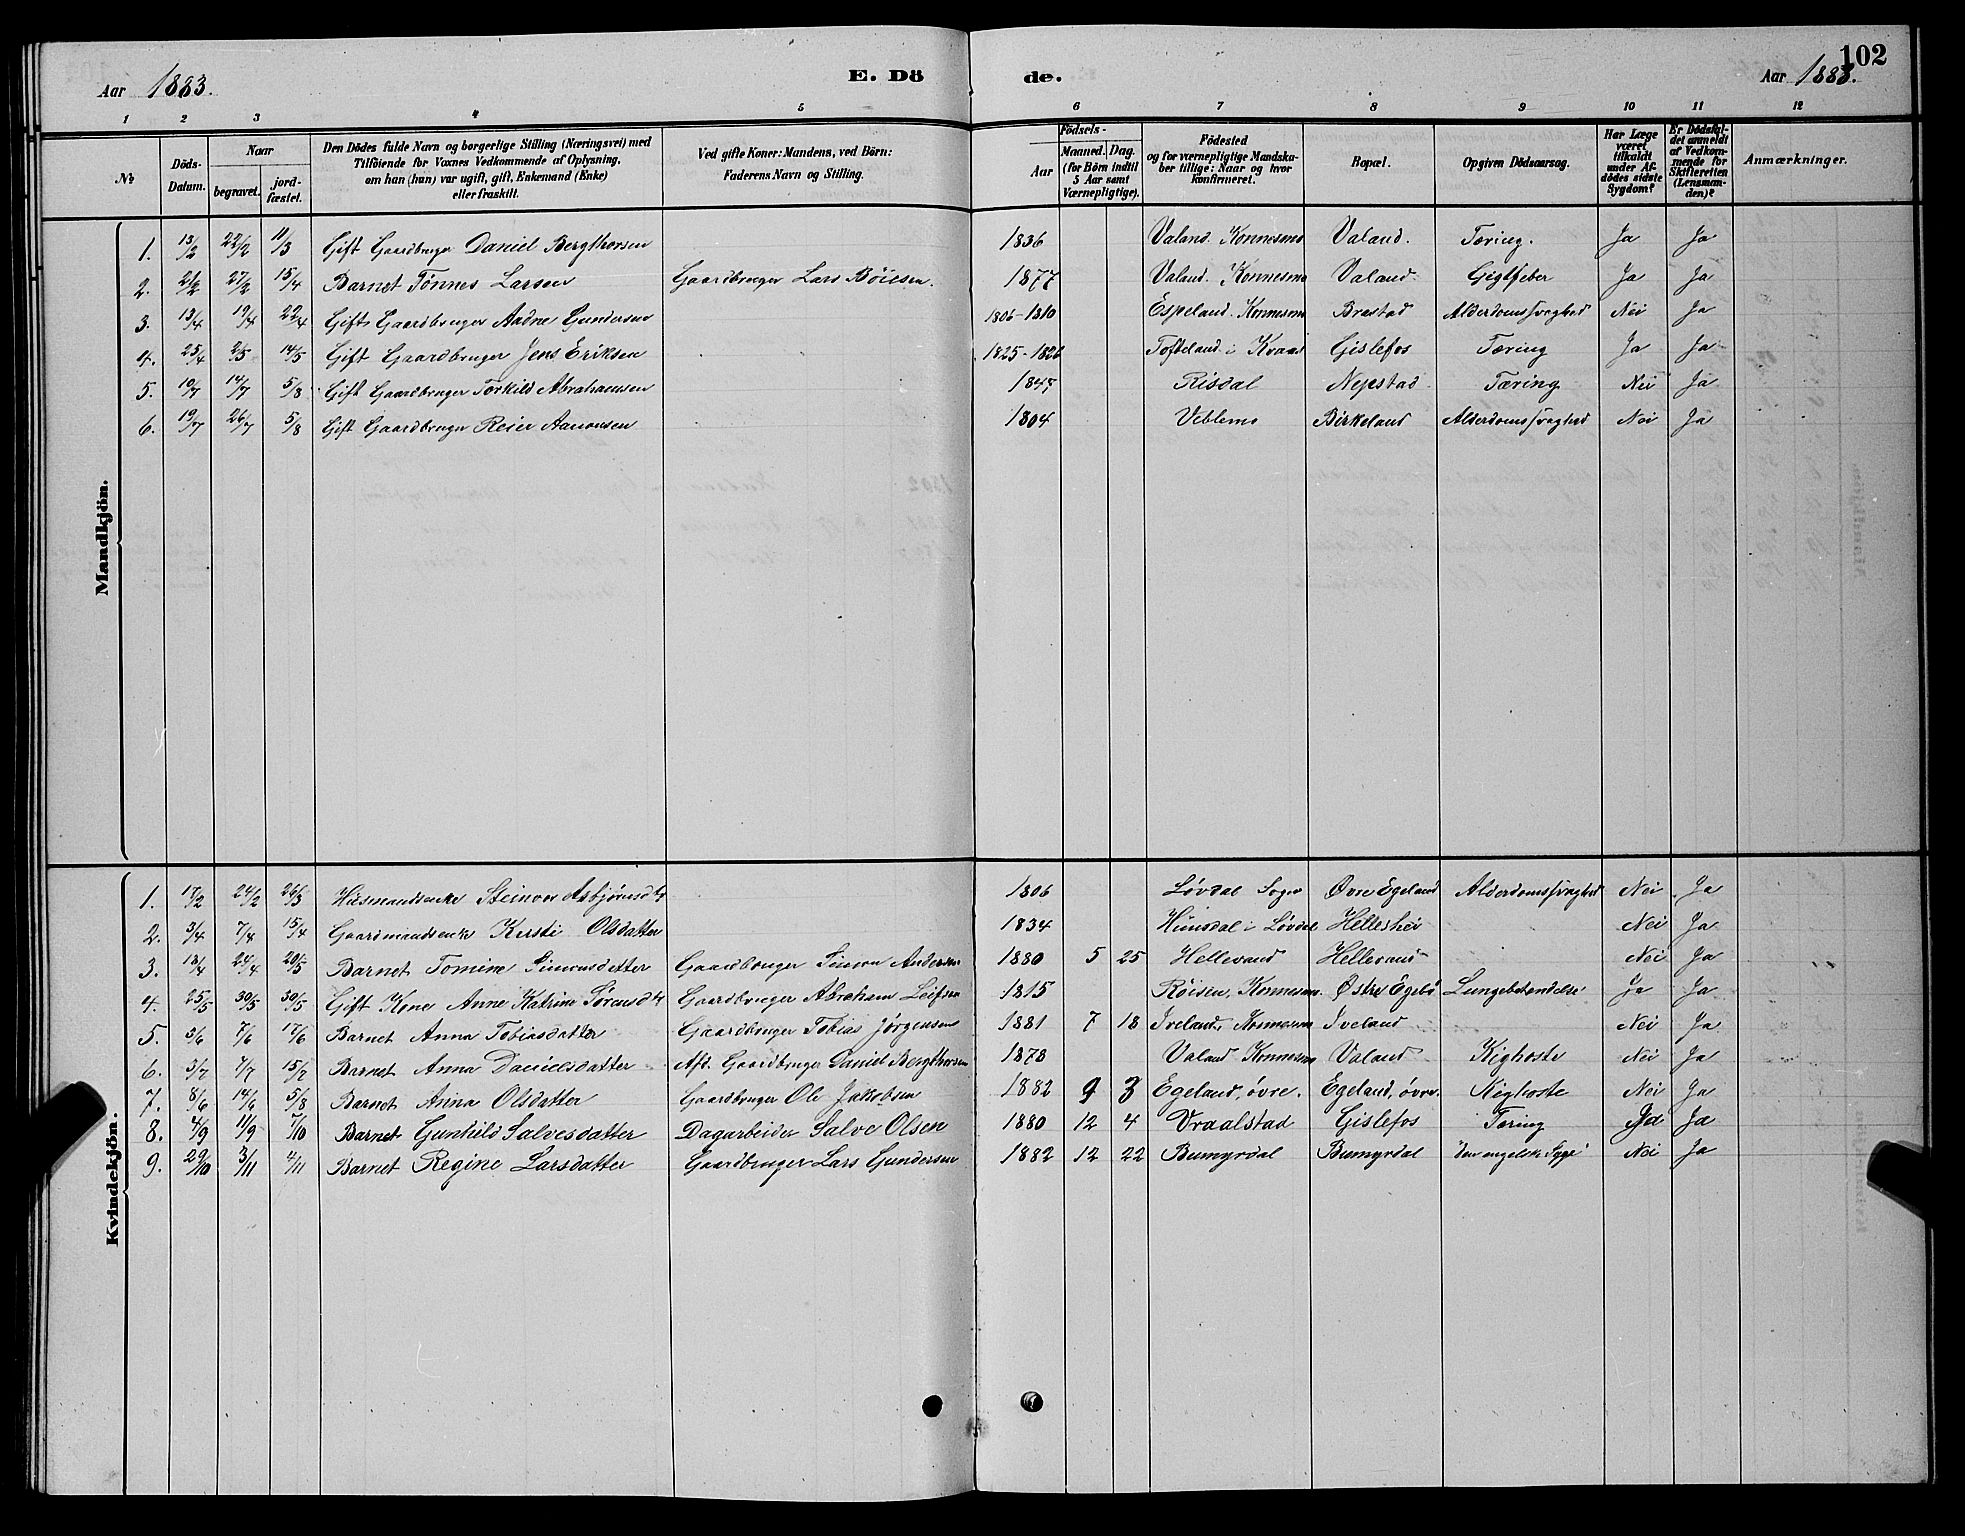 Aar 1883. E. Dö de. Aar 1883. 102
1 2 3 4 5 6 7 8 9 10 11 12
No Döds-Datum. Naar begravet. jord-fæstet. Den Dödes fulde Navn og borgerlige Stilling (Næringsvei) med Tilföiende for Voxnes Vedkommende af Oplysning, om han (hun) var ugift, gift, Enkemand (Enke) eller fraskilt. Ved gifte Koner: Mandens, ved Börn: Faderens Navn og Stilling. Födsels- Aar Maaned. Dag. (for Børn indtil 5 Aar samt Værnepligtige). Födested og for værnepligtige Mandska-ber tillige: Naar og hvor konfirmeret. Bopæl. Opgiven Dödsaarsag. Har Læge været tilkaldt under Af-dödes sidste Sygdom? Er Dödsfal-det anmeldt af Vedkom-mende for Skifteretten (Lensman-den)? Anmærkninger.
Mandkjön.
1. 13/2 22/2 11/3 Gift Gaardbruger Daniel Bergthorsen 1836 Valand. Konnesmo Valand. Tæring. Ja Ja
2. 21/2 27/2 15/4 Barnet Tönnes Larsen Gaardbruger Lars Böiesen. 1877 Valand. Konnesmo Valand Gigtfeber Ja Ja
3. 13/4 19/4 22/4 Gift Gaardbruger Aadne Gundersen 1806-1810 Espeland. Konnesmo Brestad Alderdomssvaghed Nei Ja
4. 25/4 2/5 14/5 Gift Gaardbruger Jens Eriksen 1825-1826 Tofteland i Kvaas Gislefos Tæring Ja Ja
5. 10/7 14/7 5/8 Gift Gaardbruger Torkild Abrahamsen Risdal Nepstad Tæring Nei Ja
6. 19/7 26/7 5/8 Gift Gaardbruger Reier Aanonsen 1804 Veblemo Birkeland Alderdomssvaghed Nei Ja
Kvindekjön.
1. 17/2 24/2 26/3 Husmandsenke Steinvor Asbjörnsdtr 1806 Lövdal Sogn Øvre Egeland Alderdomssvaghed Nei Ja
2. 3/4 7/4 15/4 Gaardmandsenke Kirsti Olsdatter 1834 Hunsdal i Lövdal Helleshei Nei Ja
3. 18/4 24/4 20/5 Barnet Tomine Simonsdatter Gaardbruger Simon Andersen 1880 5 25 Hellesand Hellesand Nei Ja
4. 25/5 30/5 30/5 Gift Kone Anne Katrine Sörensdtr Gaardbruger Abraham Leifsen 1815 Röisen, Konnesmo. Østre Egebö Lungebetændelse Ja Ja
5. 3/6 7/6 17/6 Barnet Anna Tobiasdatter Gaardbruger Tobias Jörgensen 1881 7 18 Iveland, Konnesmo Iveland Nei Ja
6. 3/7 7/7 15/7 Barnet Anna Danielsdatter Afd. Gaardbruger Daniel Bergthorsen 1878 Valand Konnesmo Valand Kighoste Nei Ja
7. 8/6 14/6 5/8 Barnet Anna Olsdatter Gaardbruger Ole Jakobsen 1882 9 3 Egeland, övre. Egeland, övre. Kighoste Nei Ja
8. 4/9 11/9 7/10 Barnet Gunhild Salvesdatter Dagarbeider Salve Olsen 1880 12 4 Vraalstad Gislefos Tæring Ja Ja
9. 29/10 3/11 4/11 Barnet Regine Larsdatter Gaardbruger Lars Gundersen 1882 12 22 Bumyrdal Bumyrdal den engelsk Syge Nei Ja